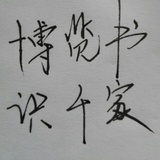 博览书
识千家